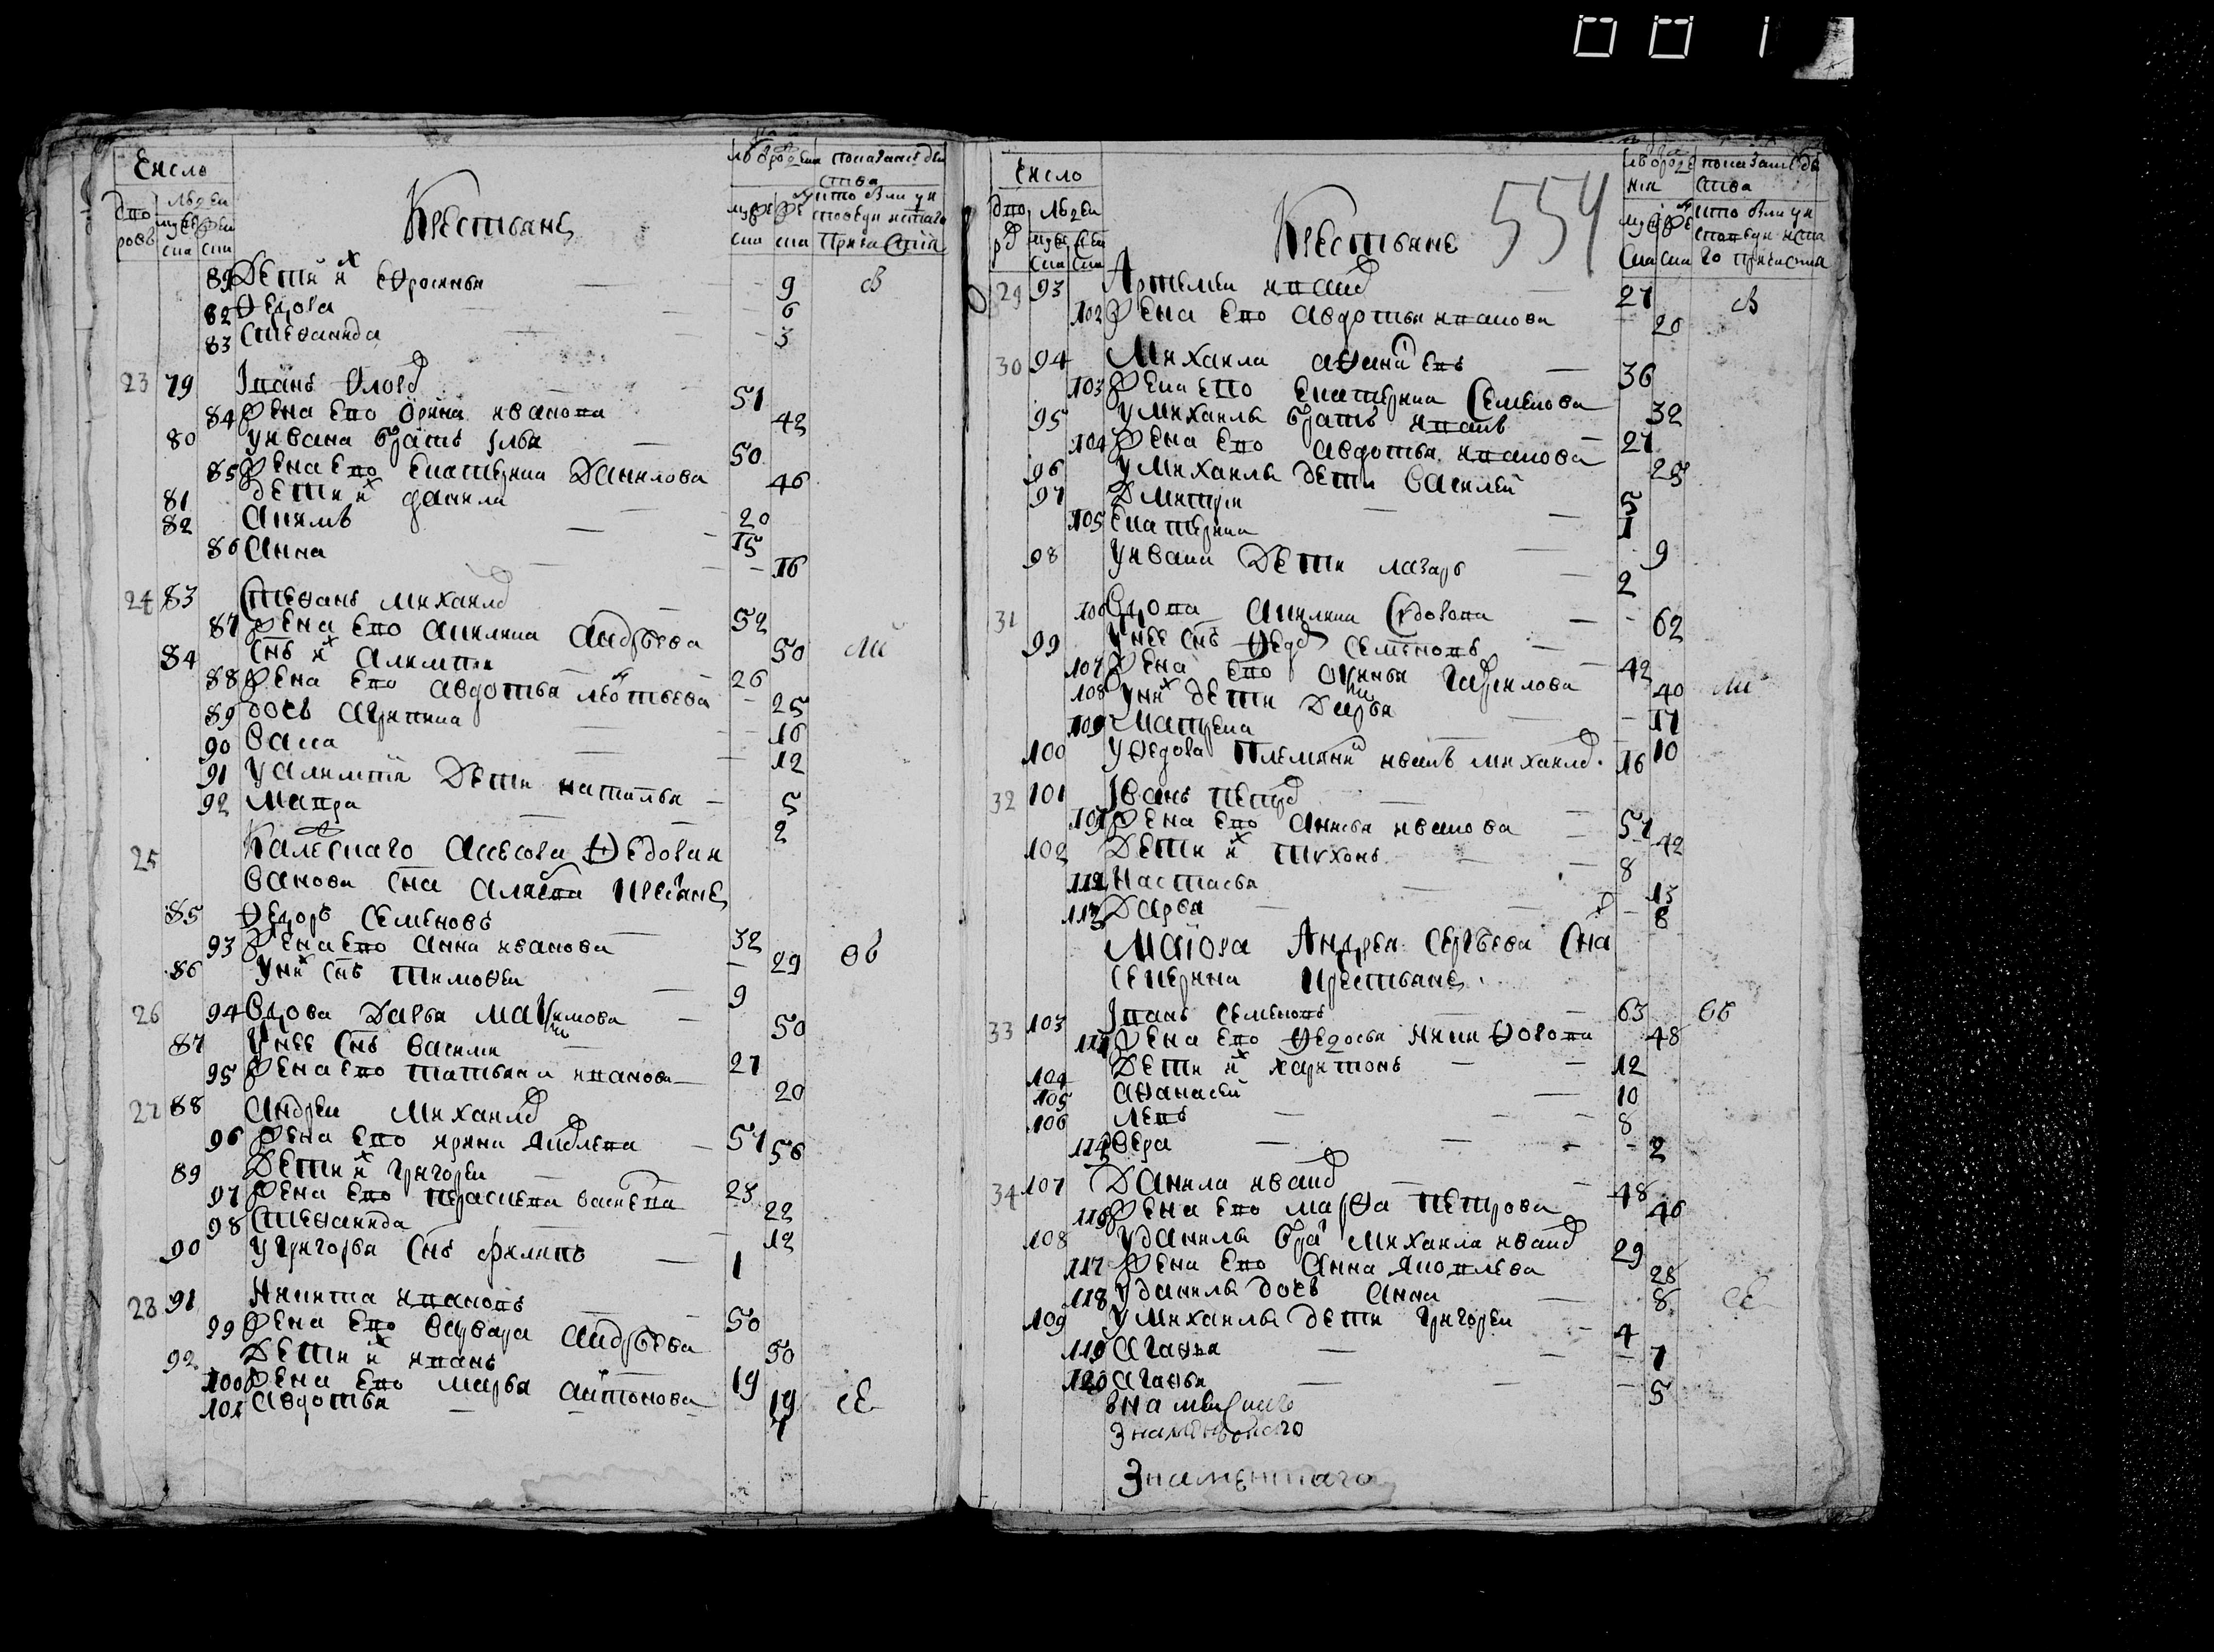 Число
дворовъ
людей
мужеска
женска
Крестьяне
лѣ от рожден
мужеска
женска
показание действа
кто были у исповеди и святаго причастия
81 Дети их Ефросинья — 9 в
82 Федора — 6
83 Степанида — 3
23 79 Iванъ Фло — 51
84 жена ево Орина иванова 42
80 у ивана братъ Илья — 50
85 жена ево Екатерина Данилова 46
81 дети их данила — 20
82 Акимъ — 15
86 Анна — 16
24 83 Степанъ михаило — 52
87 жена ево Акилина Андрѣева 50 ли
84 снъ их Алимпеи — 26
88 жена ево авдотья леотьева 25
89 дочь Агрипина — 16
90 Васа — 12
91 у алимпия Дети наталья — 5
92 Мавра — 2
25 Калежскаго Асесора Федора и
ванова сна крестьяне
85 Федоръ Семеновъ 32
93 жена ево анна иванова — 29 ов
86 у них снъ тимофеи — 9
26 94 Вдова Дарья Максимова — 50
87 у нее снъ василеи — 21
95 жена ево татьяна иванова — 20
27 88 Андреи михаило — 57
96 жена ево ирина яковлева — 56
89 Дети их григореи — 23
97 жена ево параскева василева 22
98 Степанида — 12
90 у григорья снъ филипъ — 1
28 91 Никита ивановъ — 50
99 жена ево варвара андрѣева 50
92 Дети их иванъ — 19
100 жена ево марья антонова 19 се
101 авдотья — 7
Число
двор
людей
мужеска
женска
Крестьяне
554
лѣ от рожде
ния
мужеска
женска
показание действа
кто были у исповеди и свята
го причастия
29 93 Артемеи ивано — 27 в
102 жена ево авдотья иванова — 26
30 94 Михаила афанасьевъ — 36
103 жена ево екатерина Семенова 32
95 у михаилы братъ иванъ — 27
104 жена ево авдотья иванова 25
96 у михаилы дети василей 5
97 Дмитреи — 1
105 екатерина — 9
98 у ивана Дети лазарь — 2
31 106 Вдова Акилина Сидорова — 62
99 у нее снъ Федо Семеновъ — 42
107 жена ево аксинья гаврилова 40 ли
108 у них дети Дарья — 17
109 матрена — 10
100 у Федора племяни иванъ михаило. 16
32 101 Iванъ петро — 57
жена ево анисья иванова — 42
102 Дети их тихонъ — 8
Настасья — 15
Дарья — 8
Маиора Андрея Сергѣева сна
крестьяне
33 103 Iванъ семеновъ 63 ов
жена ево Федосья никифорова 48
104 Дети их харитонъ — 12
105 афанасеи — 10
106 левъ — 8
114 вера — 2
34 107 Данила ивано — 48
116 жена ево марфа петрова 46
108 у данилы бра михаила ивано 29
117 жена ево анна яковлева 28
118 у данилы дочь анна — 8 се
109 у михаилы дети григореи — 4
119 агафья — 7
120 агафья — 5
Знаменского
Знаменнаго